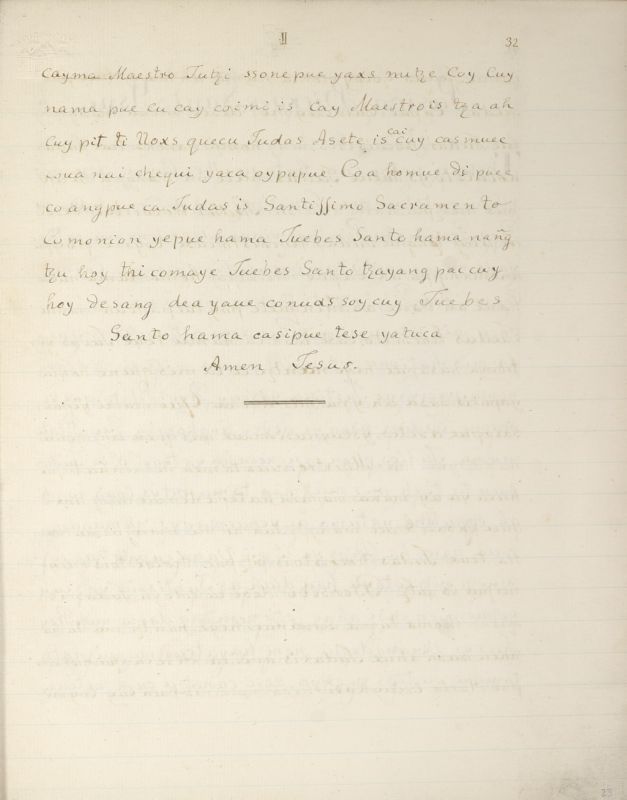 II
32
cayma Maestro Tutzi ssone pue yaxs mutze Coy Cuy
nama pue cu cay coimi is Cay Maestrois tza ah
Cuy pit ti Noxs quecu Judas Asete is cai cuy casmuee
nai chequi yaca oypupue Coa homue di puee
co angpue ca Judas is Santissimo Sacramento
Comonion yepue hama Juebes Santo hama nañg
tzu hoy tni comaye Juebes Santo tzayang pac cuy
hoy desang dea yaue conuds soy cuy Juebes
Santo hama casipue tese yatuca
Amen Jesus.
23